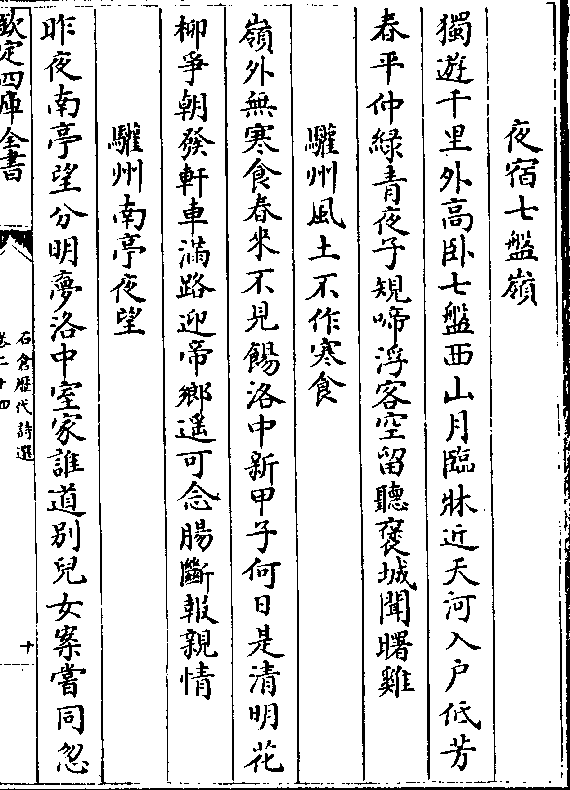 夜宿七盤嶺
獨遊千里外高卧七盤西山月臨牀近天河入户低芳
春平仲綠青夜子規啼浮客空留聽褒城聞曙雞
驩州風土不作寒食
嶺外無寒食春來不見餳洛中新甲子何日是清明花
柳爭朝發軒車滿路迎帝鄉遥可念腸斷報親情
驩州南亭夜望
昨夜南亭望分明夢洛中室家誰道别兒女案嘗同忽
欽定四庫全書
石倉歴代詩選
卷二十四
十